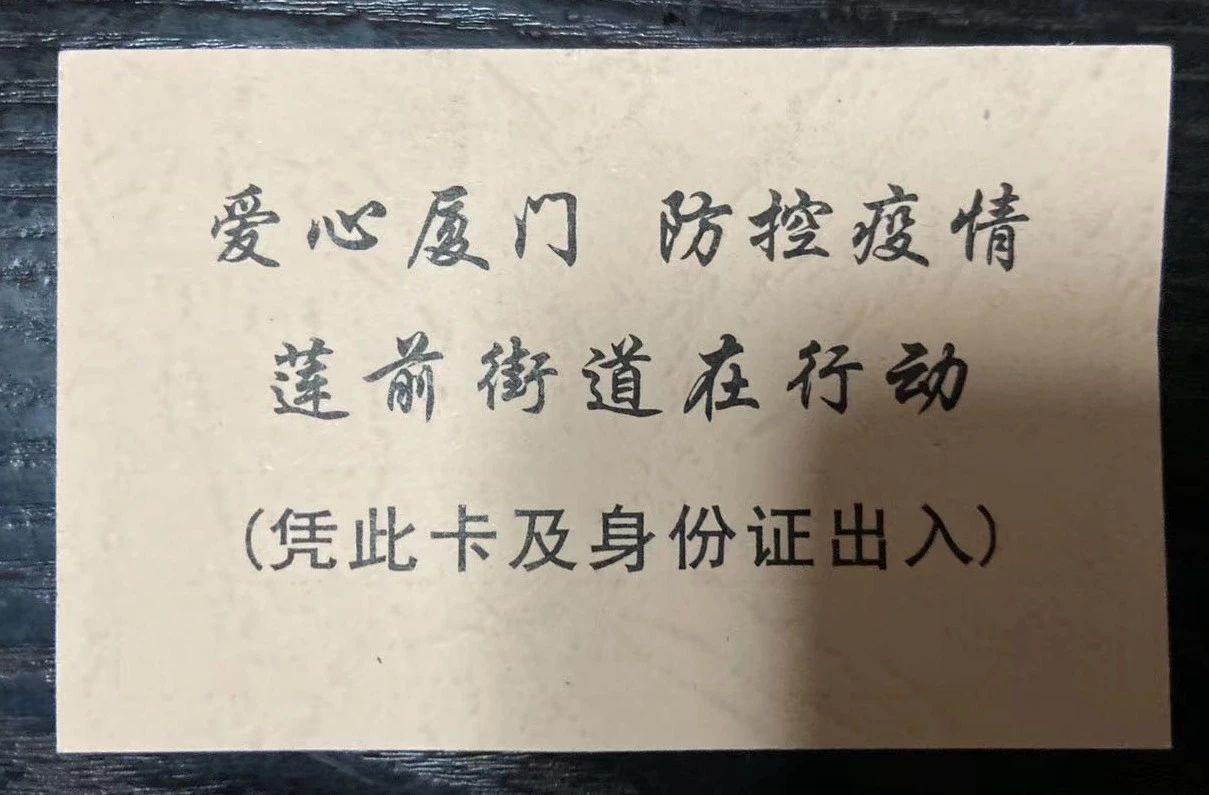 爱心厦门 防控疫情
莲前街道在行动
(凭此卡及身份证出入)